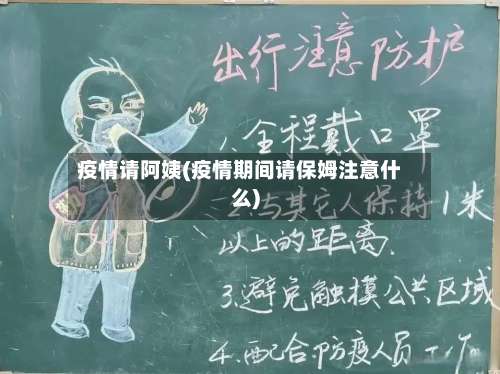 出行注意防护
1.全程戴口罩
疫情请阿姨(疫情期间请保姆注意什
么)
2.与其它人保持1米
以上的距离.
3.避免触摸公共区域
4.配合防疫人员工作